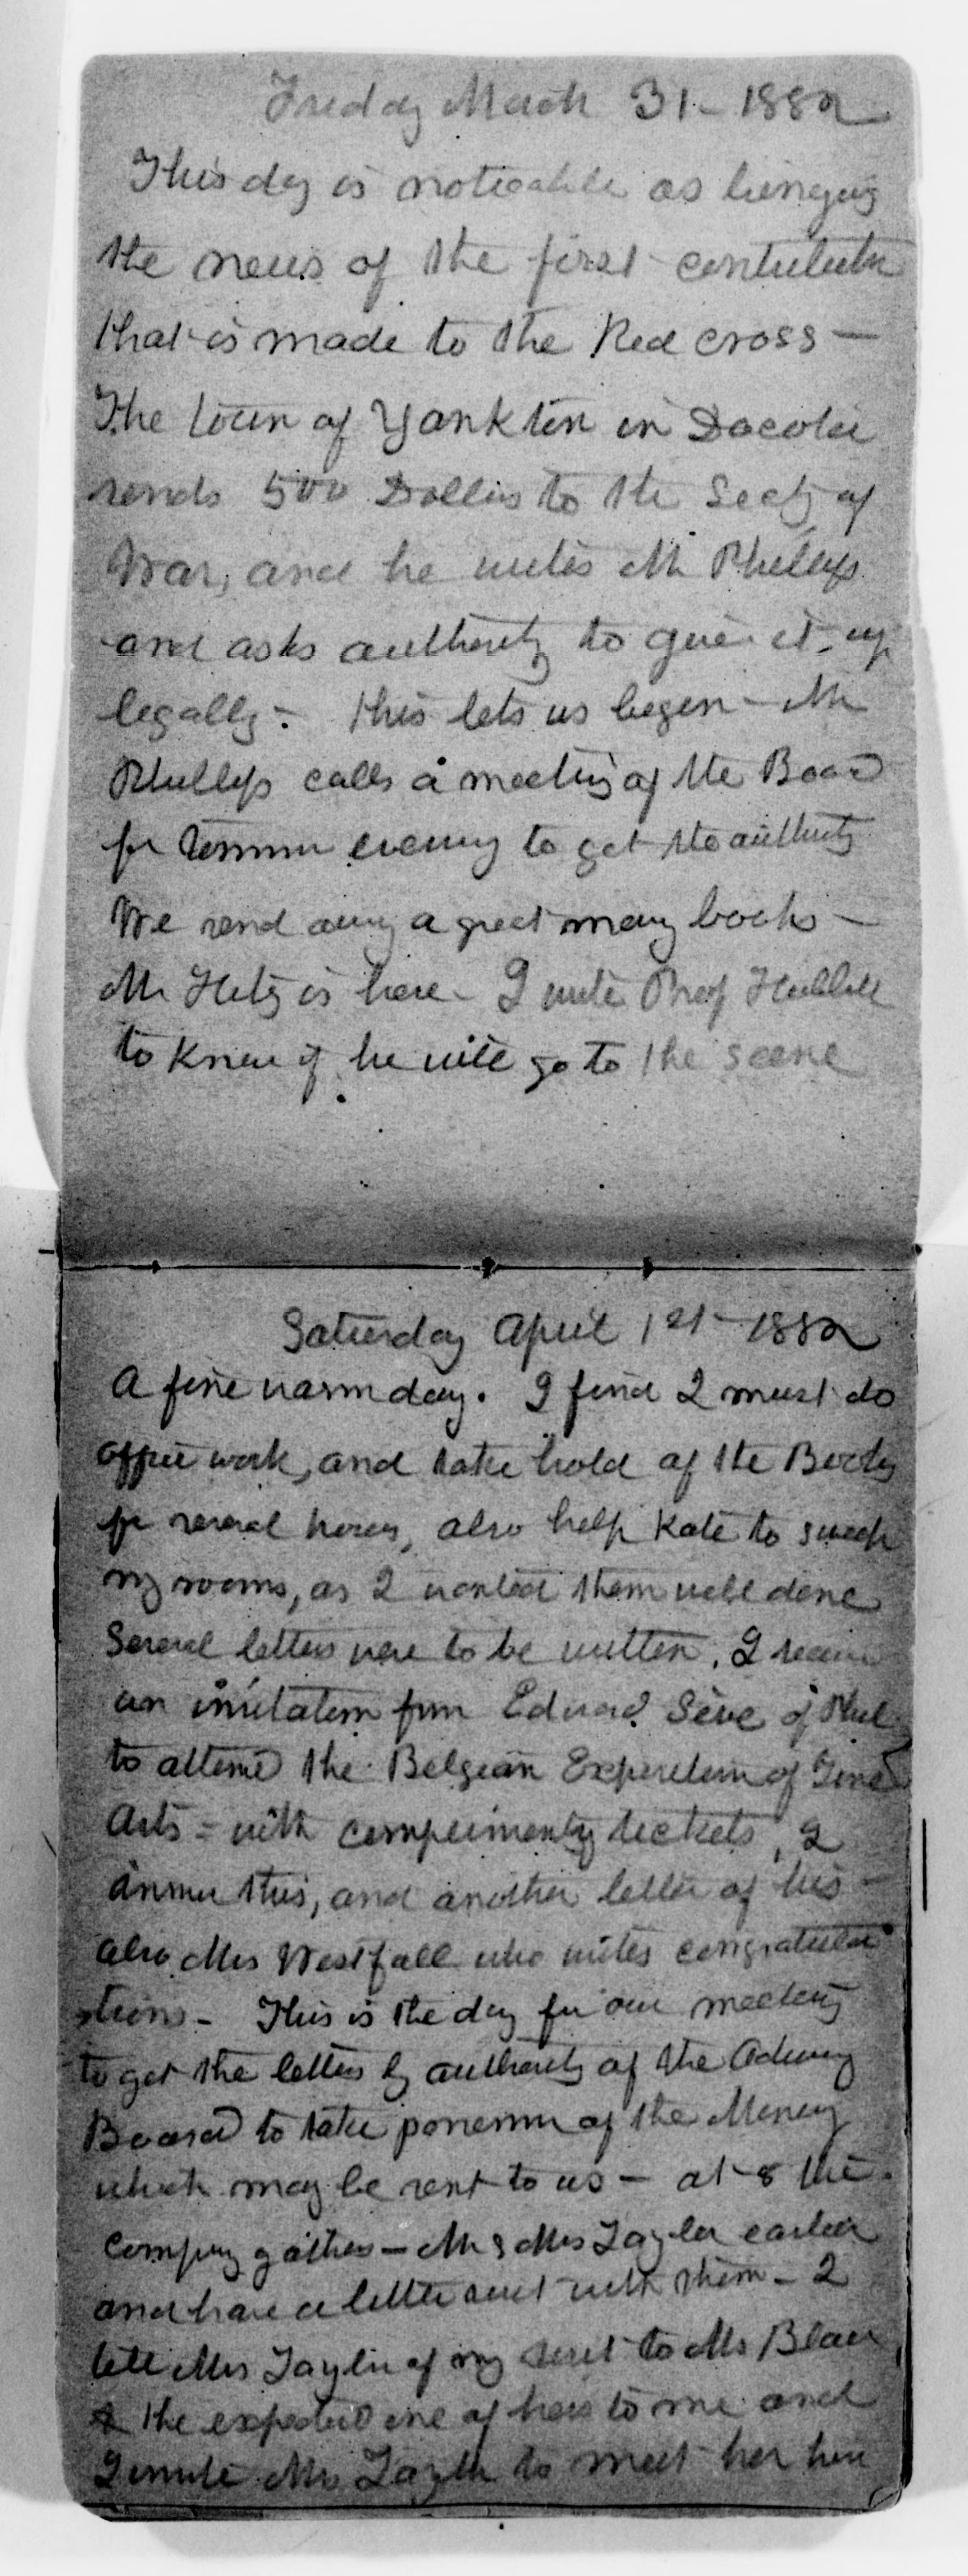 Friday March 31 - 1882
This day is noticable as bringing
the news of the first contribution
that is made to the Red cross —
The town of Yankton in Dacota
sends 500 Dollars to the Secty of
War, and he writes Mr Phillips
and asks authority to give it up
legally - This lets us begin - Mr
Phillips calls a meeting of the Board
for tomorrow evening to get the authority
We send away a great many books —
Mr Hitz is here - I write Prof Hubbell
to know if he will go to the scene
Saturday April 1st - 1882
A fine warm day. I find I must do
office work, and take hold of the Books
for several hours, also help Kate to sweep
my rooms, as I wanted them well done
Several letters were to be written. I receive
an invitation from Edward Seve of Phil
to attend the Belgian Exposition of Fine
Arts = with complimenty tickets, I
answer this, and another letter of his —
also Mrs Westfall who writes congratula
tions - This is the day for our meeting
to get the letters by authority of the Advisory
Board to take possession of the Money
which may be sent to us — at 8 the
Company gathers — Mr & Mrs Taylor earlier
and have a little visit with them - I
tell Mrs Taylor of my visit to Mrs Blair
& the expected one of hers to me and
I invite Mrs Taylor to meet her here